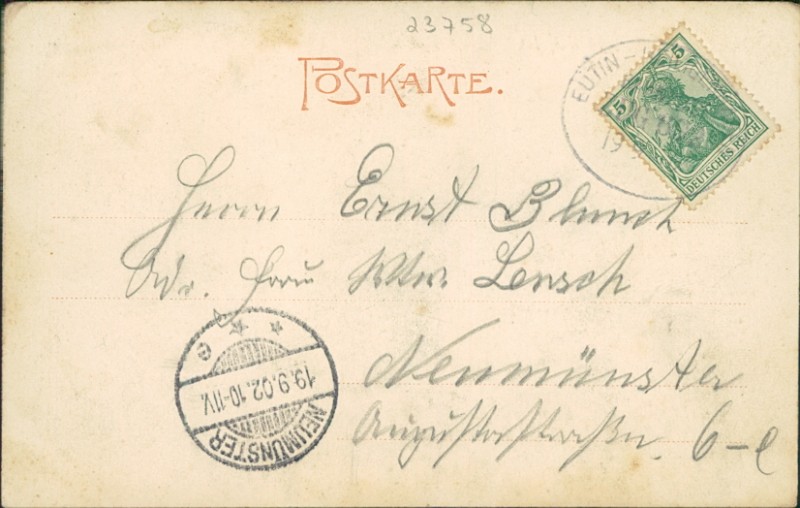 23758
POSTKARTE.
EUTIN-
19
5
5
DEUTSCHES REICH
Herrn Ernst Blunck
Adr. Frau Wtw. Lensch
Neumünster
Auguststraße 6-e
NEUMÜNSTER
19.9.02.10-11V.
* * e